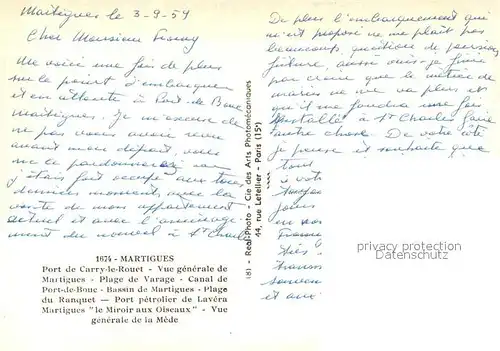 Martigues le 3-9-59
Cher Monsieur
Me voici une fois de plus
sur le point d'embarquer
et en attente à Port de Bouc
Martigues. Je m'excuse de
ne pas vous avoir revu
avant mon départ, vous
me le pardonnerez
j'étais fort occupé aux tous
derniers moments, avec la
vente de mon appartement
actuel et avec l'aménage-
ment du nouvel à St Charles
De plus l'embarquement qui
m'est proposé ne me plaît pas
beaucoup, question de pension
future, aussi vais-je finir
par croire que le métier de
marin ne me va plus et
qu'il me faudra une fois
installé à St Charles faire
autre chose. De votre côté
je pense et souhaite que
tout
va
jours
France
souvenir
et aux
1674 - MARTIGUES
Port de Carry-le-Rouet - Vue générale de
Martigues - Plage de Varage - Canal de
Port-de-Bouc - Bassin de Martigues - Plage
du Ranquet — Port pétrolier de Lavéra
Martigues "le Miroir aux Oiseaux" - Vue
générale de la Mède
181 - Real-Photo - Cie des Arts Photomécaniques
44, rue Letellier - Paris (15e)
protection copyright
delcampe